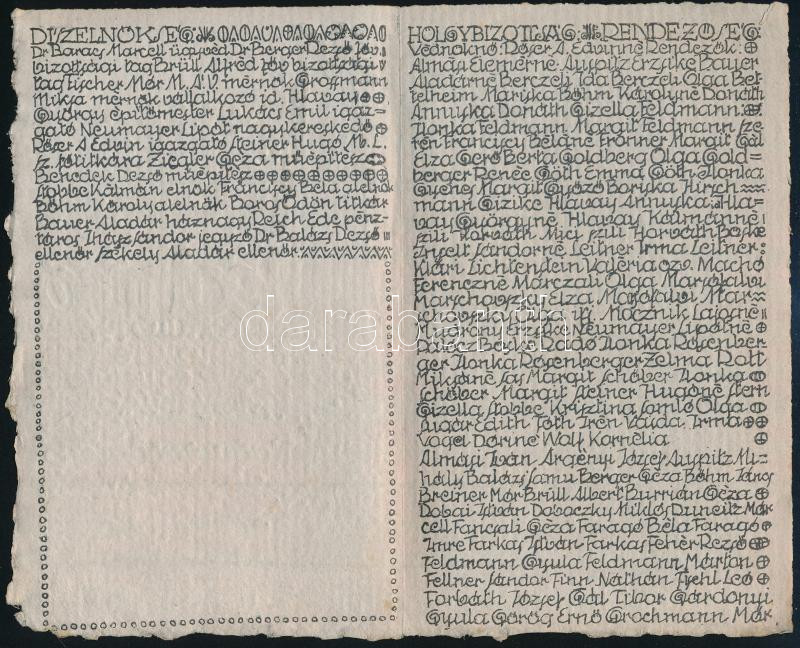 DISZELNÖKSÉG
Dr Baracs Marcell ügyvéd Dr Berger Rezső föv.
bizottsági tag Brüll Alfréd föv bizottsági
tag Fischer Mór M. Á. V. mérnök Grossmann
Miksa mérnök vállalkozó id. Hlavay
György épitőmester Lukács Emil igaz=
gató Neumayer Lipót nagykereskedő
Róser A Edvin igazgató Steiner Hugó M. L.
sz. főtitkára Ziegler Géza műépitész
Benedek Dezső műépitész
Stobbe Kálmán elnök Franciscy Béla alelnök
Böhm Károly alelnök Boros Ödön titkár
Bauer Aladár háznagy Reich Ede pénz=
táros Inász Sándor jegyző Dr Balázs Dezső
ellenőr Székely Aladár ellenőr
HÖLGYBIZOTTSÁG RENDEZŐSÉG
Védnöknő: Róser A. Edvinné Rendezők:
Almási Elemérné Auspitz Erzsike Bauer
Aladárné Berczeli Ida Berczeli Olga Bet=
telheim Mariska Böhm Károlyné Donáth
Annuska Donáth Gizella Feldmann:
Ilonka Feldmann Margit Feldmann Sze=
rén Franciscy Béláné Fronner Margit Gál
Elza Gerő Berta Goldberg Olga Gold=
berger Renée Góth Emma Góth Ilonka
Gyenes Margit Győző Boriska Hirsch
mann Gizike Hlavay Annuska: Hla=
vay Györgyné Hlavay Kálmánné
Szili Horváth Mici Szili Horváth Böske
Inselt Sándorné Leitner Irma Leitner:
Klári Lichtenstein Valéria özv. Machó
Ferenczné Márczali Olga Marjsalvi
Marschovszky Elza Marjsalvi Mar=
schovszky Olga ifj. Mocznik Lajosné
Mudrony Erzsike Neumayer Lipótné
Pánécz Bajkó Radó Ilonka Rosenber
ger Ilonka Rosenberger Zelma Rott
Miksáné Sas Margit Schóber Ilonka
Schóber Margit Steiner Hugóné Stern
Gizella Stobbe Krisztina Somló Olga
Sugár Edith Tóth Irén Vajda Irma
Vogel Dorine Wolf Kornélia
Almási Iván Argényi József Auspitz Mi=
hály Balázs Samu Berger Géza Böhm János
Breiner Mór Brüll Albert Burrián Géza
Dobai István Doboczky Miklós Duneitz Már
cell Fancsali Géza Faragó Béla Faragó
Imre Farkas István Farkas Fehér Rezső
Feldmann Gyula Feldmann Márton
Fellner Sándor Finn Náthán Fischl Leó
Forváth József Gál Tibor Gárdonyi
Gyula Görög Ernő Grochmann Mór
darabanth